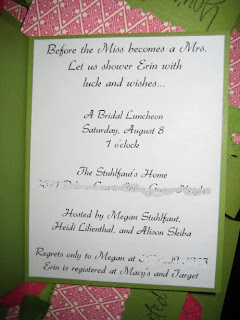 Before the Miss becomes a Mrs.
Let us shower Erin with
luck and wishes...
A Bridal Luncheon
Saturday, August 8
1 o'clock
The Stuhlfaut's Home
Hosted by Megan Stuhlfaut,
Heidi Lilienthal, and Alison Skiba
Regrets only to Megan at
Erin is registered at Macy's and Target